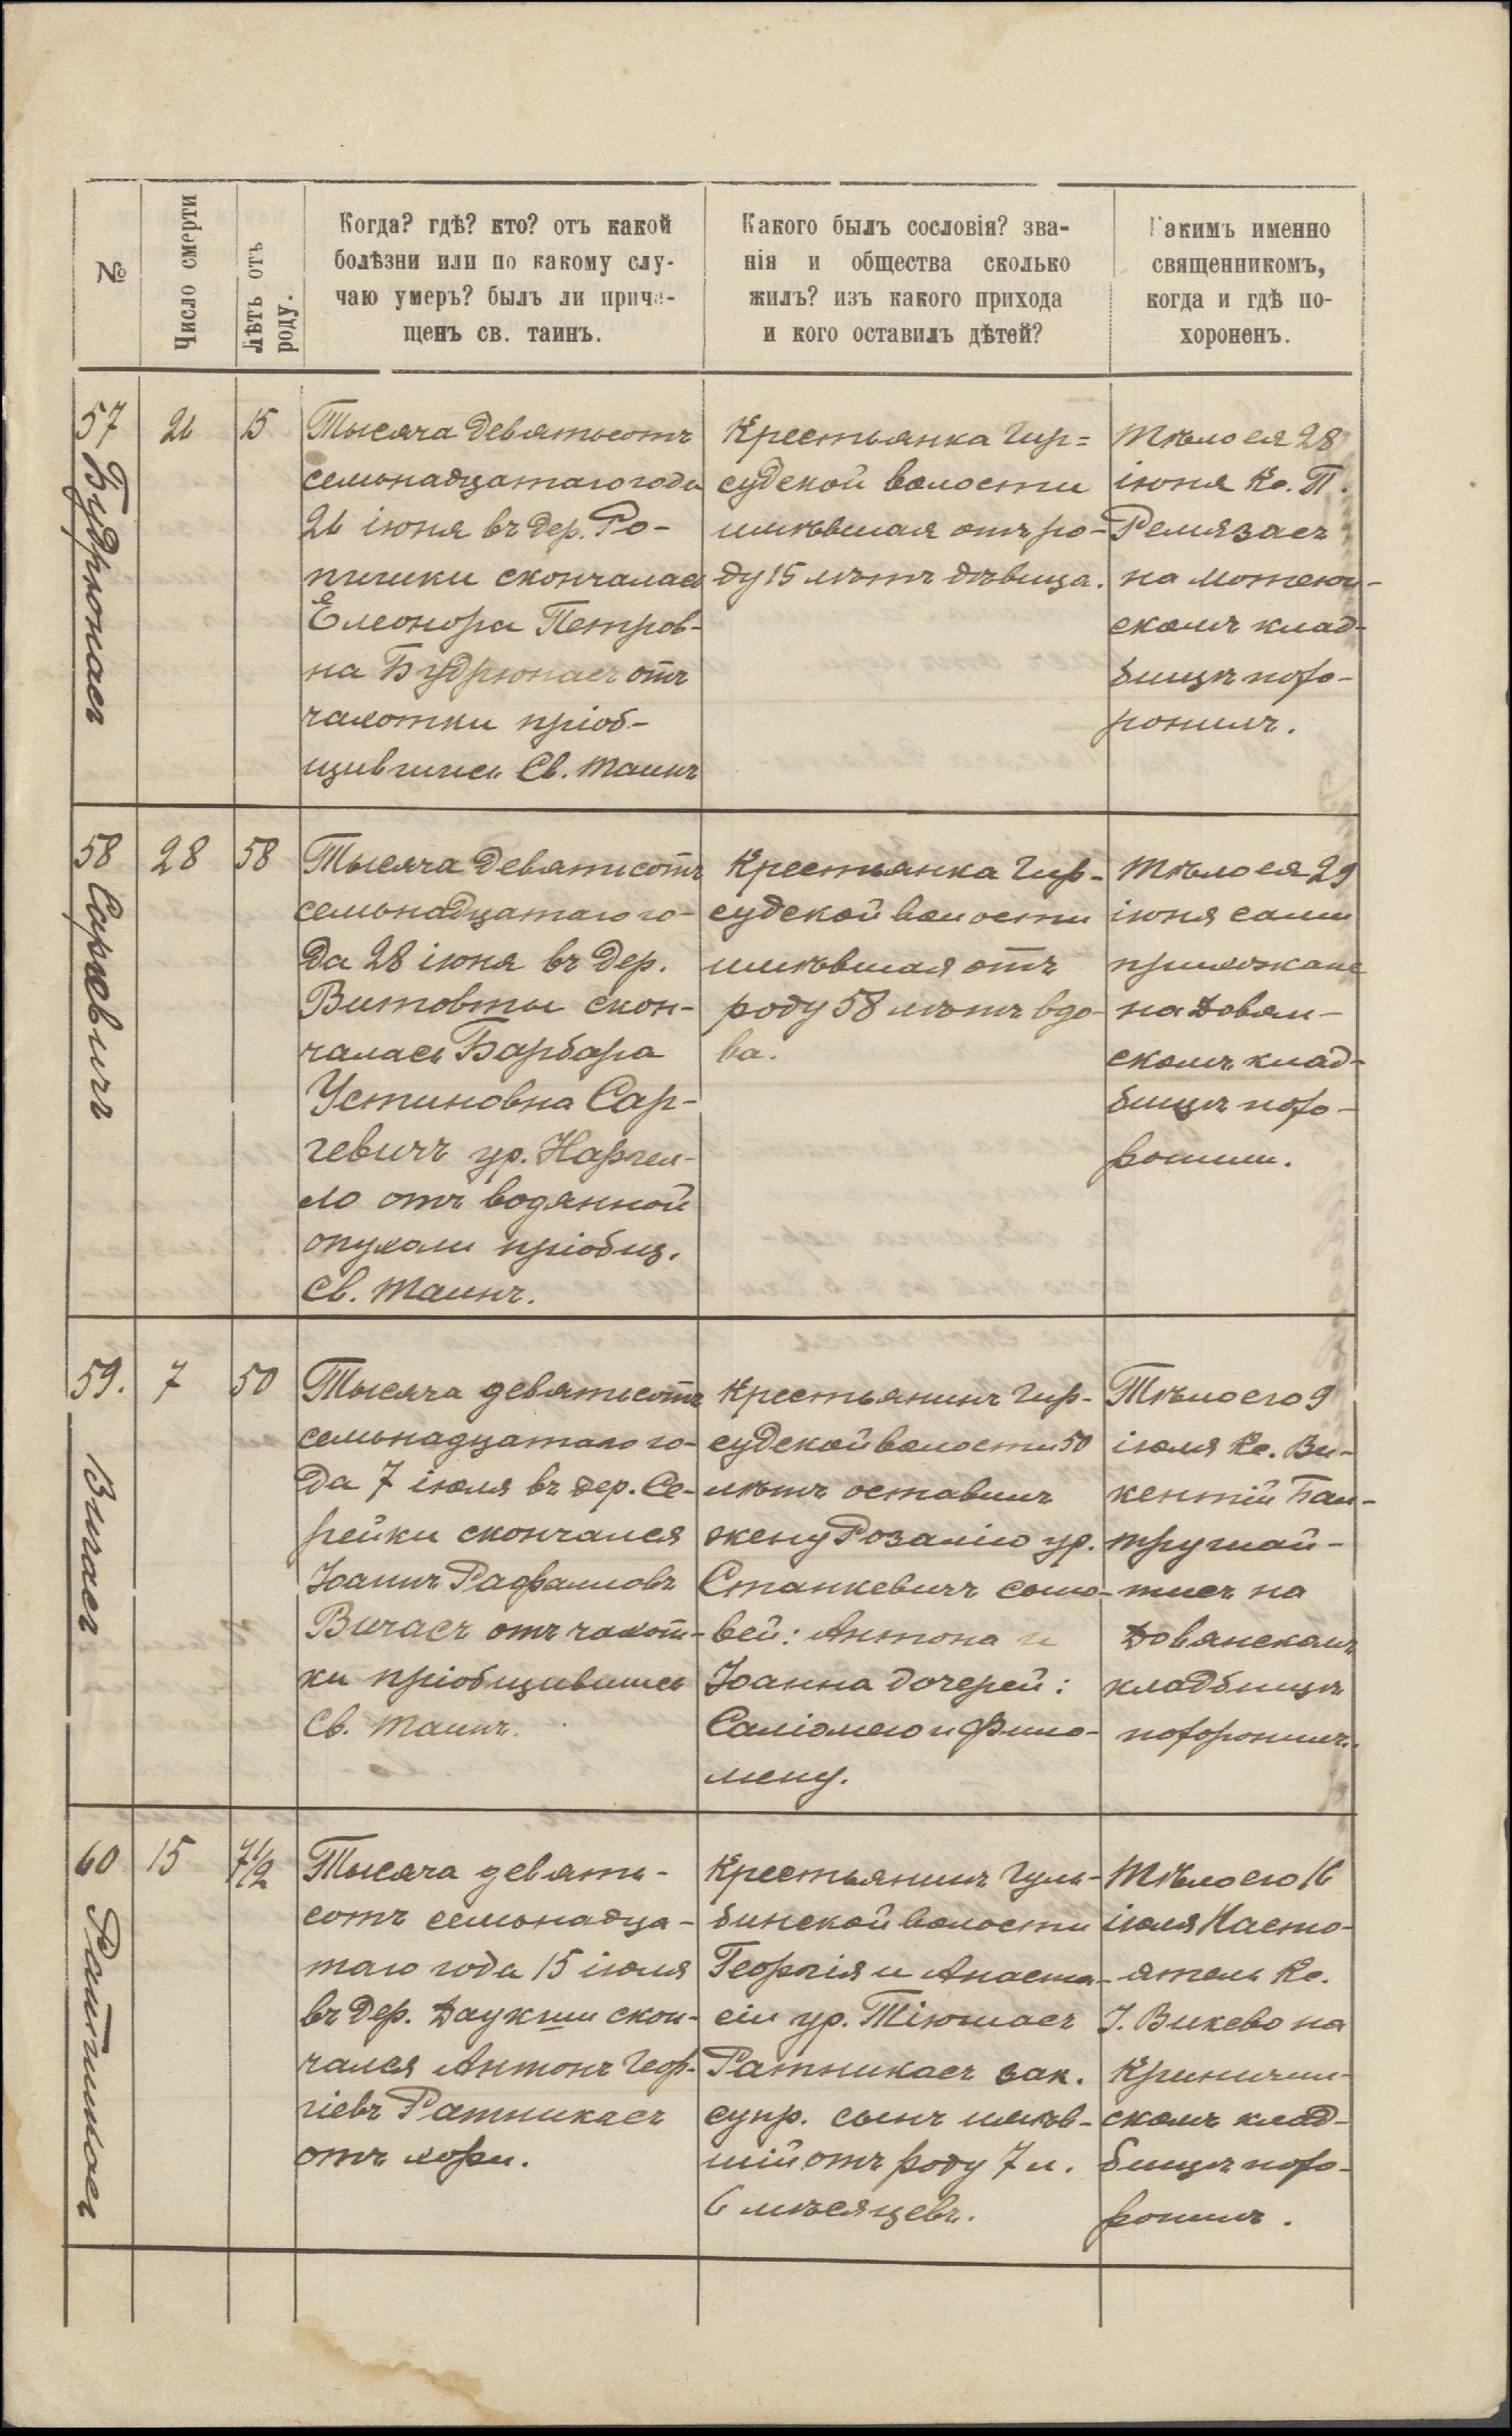 №
Число смерти
Лѣтъ отъ
роду.
Когда? гдѣ? кто? отъ какой
болѣзни или по какому слу-
чаю умеръ? былъ ли прича-
щенъ св. таинъ.
Какого былъ сословія? зва-
нія и общества сколько
жилъ? изъ какого прихода
и кого оставилъ дѣтей?
Какимъ именно
священникомъ,
когда и гдѣ по-
хороненъ.
57 Будрюнасъ
26
15
Тысяча девятьсотъ
семьнадцатаго года
26 іюня въ дер. Ро-
скончалась
Елеонора Петров-
на Будрюнасъ отъ
чахотки пріоб-
щившись Св. Таинъ
Крестьянка Гир-
судской волости
имѣвшая отъ ро-
ду 15 лѣтъ дѣвица.
Тѣло ея 28
іюня Кс. П.
Ремязасъ
на
скомъ клад-
бищѣ похо-
ронилъ.
58 Саргевичъ
28
58
Тысяча девятьсотъ
семьнадцатаго го-
да 28 іюня въ дер.
Витовты скон-
чалась Барбара
Устиновна Сар-
гевичъ ур. Наргел-
ло отъ водянной
опухоли пріобщ.
Св. Таинъ.
Крестьянка Гир-
судской волости
имѣвшая отъ
роду 58 лѣтъ вдо-
ва.
Тѣло ея 29
іюня сами
прихожане
на Довян-
скомъ клад-
бищѣ похо-
ронили.
59. Вичасъ
7
50
Тысяча девятьсотъ
семьнадцатаго го-
да 7 іюля въ дер. Се-
рейки скончался
Іоаннъ Рафаиловъ
Вичасъ отъ чахот-
ки пріобщившись
Св. Таинъ.
Крестьянинъ Гир-
судской волости 50
лѣтъ оставилъ
жену Розалію ур.
Станкевичъ сыно-
вей: Антона и
Іоанна дочерей:
Саліомею и Фило-
мену.
Тѣло его 9
іюля Кс. Ви-
кентій Бал-
трушай-
тисъ на
Довянскомъ
кладбищѣ
похоронилъ.
60 Ратникасъ
15
7 1/2
Тысяча девять-
сотъ семьнадца-
таго года 15 іюля
въ дер. Даукши скон-
чался Антонъ Геор-
гіевъ Ратникасъ
отъ кори.
Крестьянинъ Гуль-
бинской волости
Георгія и Анаста-
сіи ур. Тіюнасъ
Ратникасъ зак.
супр. сынъ имѣв-
шій отъ роду 7 л.
6 мѣсяцевъ.
Тѣло его 16
іюля Насто-
ятель Кс.
І. Виксво на
Криничин-
скомъ клад-
бищѣ похо-
ронилъ.